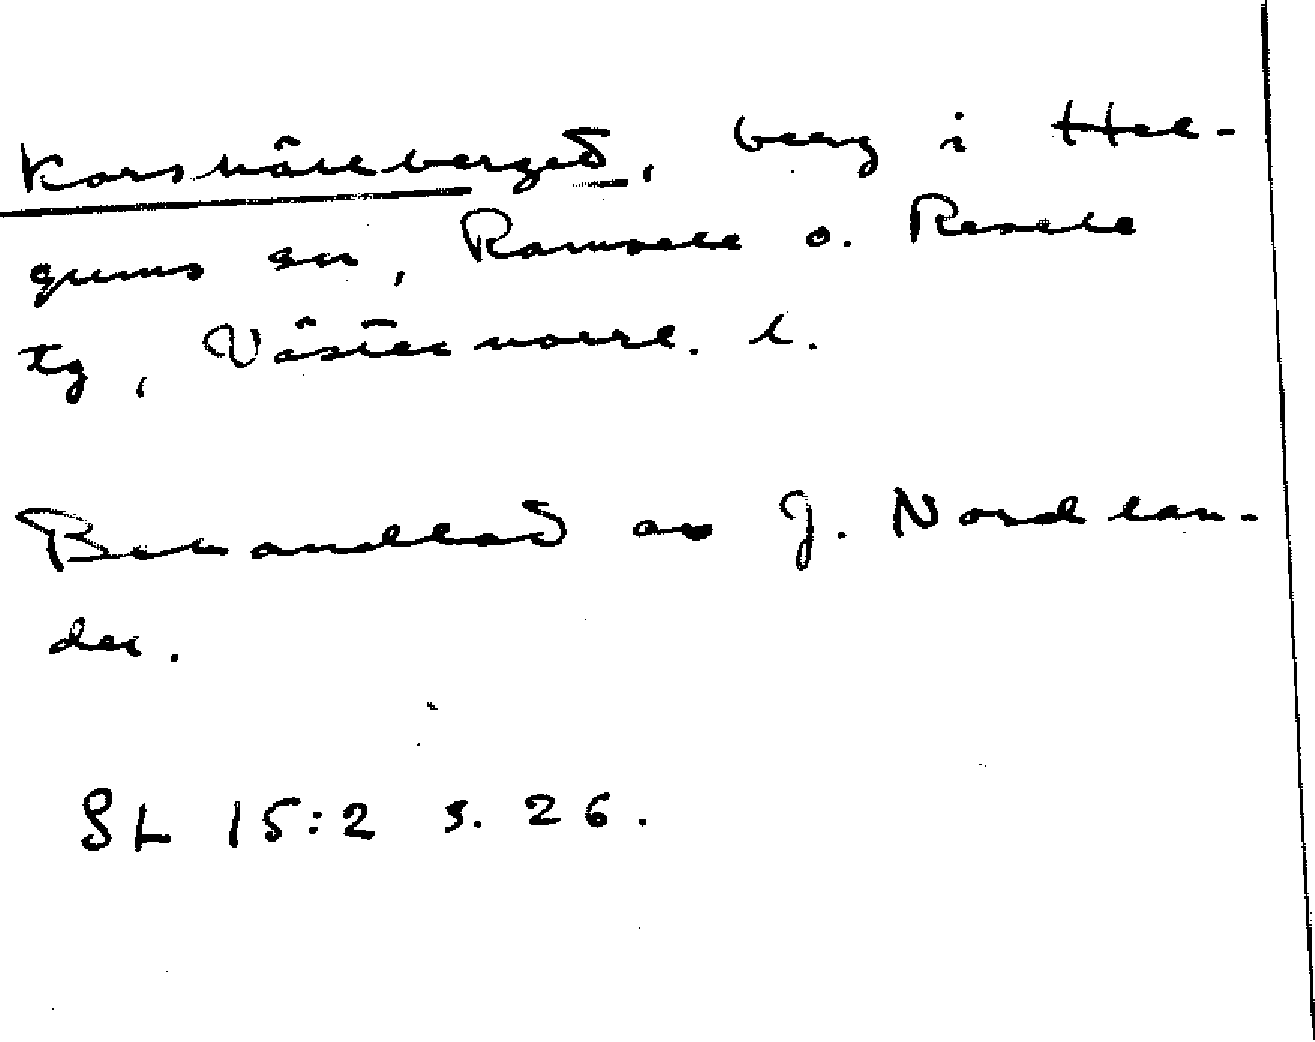 Korshällberget, berg i Hel-
gums sn, Ramsele o. Resele
tg, Västernorrl. l.
Behandlad av J. Nordlan-
der.
SL 15:2 s. 26.